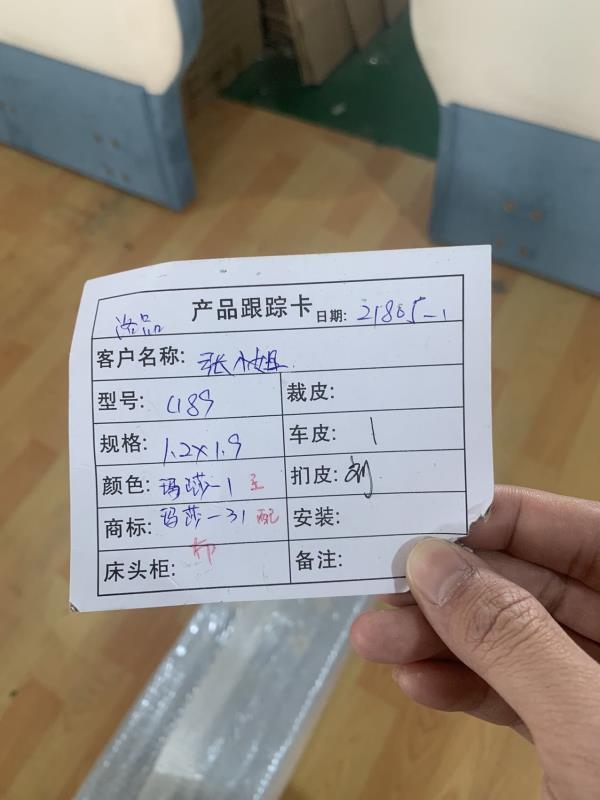 产品跟踪卡 日期: 21805-1
客户名称: 张小姐
型号: 裁皮:
规格: 1.2x1.9 车皮: 1
颜色: 玛莎-1 主 扪皮: 刘
商标: 玛莎-31 配 安装:
床头柜: 备注: